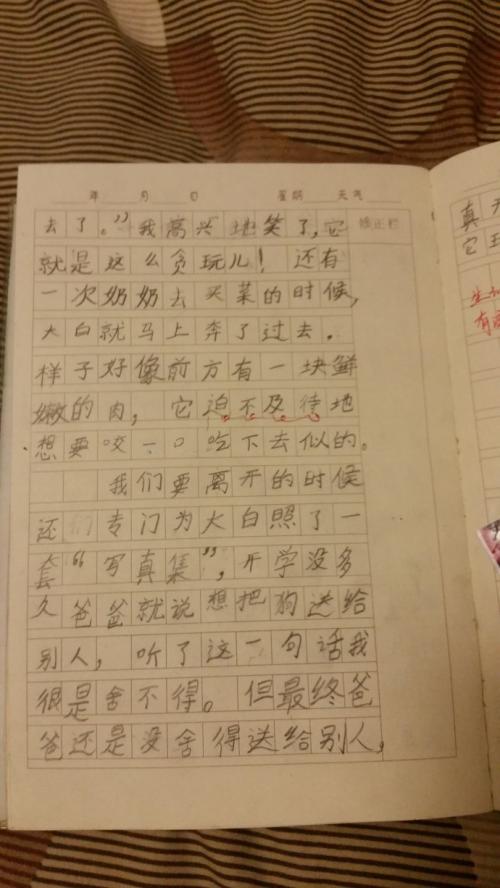 年 月 日 星期 天气
去了。”我高兴地笑了，它 修正栏
就是这么贪玩儿！还有
一次奶奶去买菜的时候，
大白就马上奔了过去。
样子好像前方有一块鲜
嫩的肉，它迫不及待地
想要咬一口吃下去似的。
我们要离开的时候
还们专门为大白照了一
套“写真集”，开学没多
久爸爸就说想把狗送给
别人，听了这一句话我
很是舍不得。但最终爸
爸还是没舍得送给别人，
真
它
有